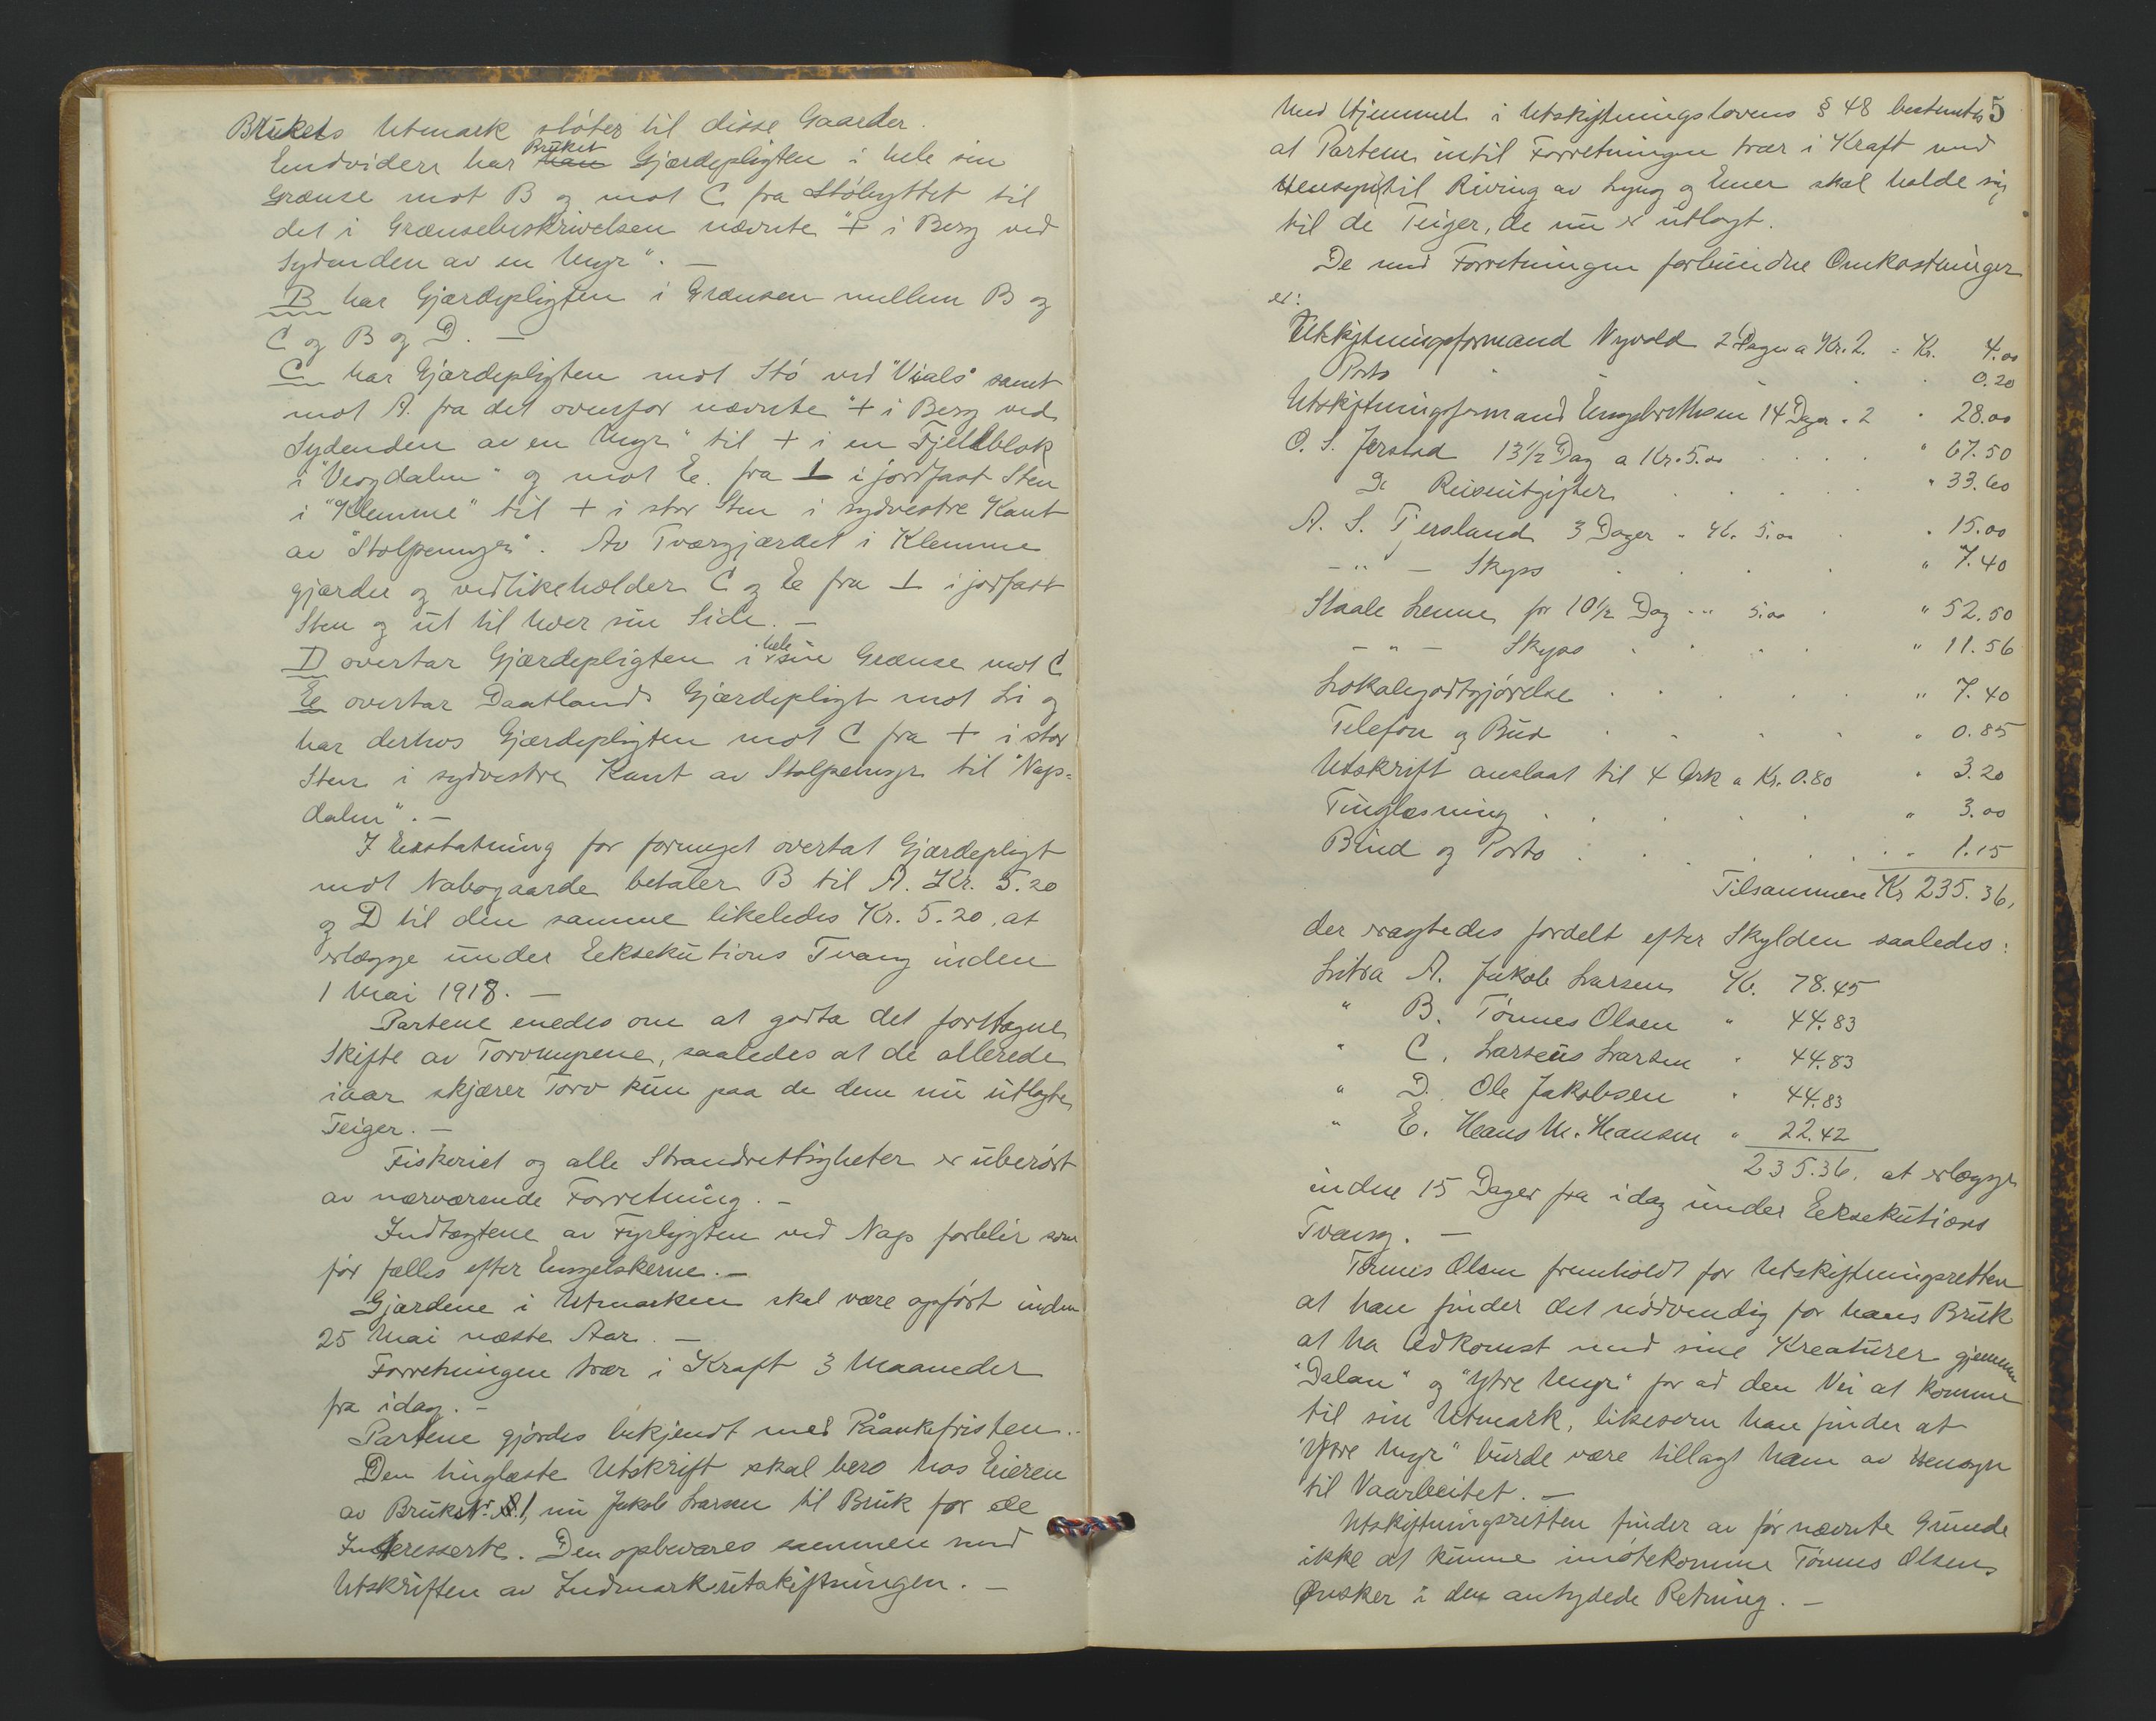 Brukets Utmark støter til disse Gaarder.
Endvidere har Bruket Gjærdepligten i hele sin
Grænse mot B og mot C fra Stöhyttet til
det i Grænsebeskrivelsen nævnte "+ i Berg ved
Sydenden av en Myr". —
B har Gjærdepligten i Grænsen mellem B og
C og B og D. —
C har Gjærdepligten mot Stö ved samt
mot A. fra det ovenfor nævnte "+ i Berg ved
Sydenden av en Myr" til + i en Fjeldblok
i og mot E. fra ⊥ i jordfast Sten
i "Klemme" til + i stor Sten i sydvestre Kant
av "Stolpemyr". Av Tværgjærdet i Klemme
gjærder og vedlikeholder C og E fra ⊥ i jordfast
Sten og ut til hver sin Side. —
D overtar Gjærdepligten i hele sin Grænse mot C
E overtar Daatlands Gjærdepligt mot Li og
har derhos Gjærdepligten mot C fra + i stor
Sten i sydvestre Kant av Stolpemyr til "Nap-
dalen". —
I Erstatning for formeget overtat Gjærdepligt
mot Nabogaarde betaler B til A. Kr. 5.20
og D til den samme likeledes Kr. 5.20, at
erlægge under Eeksekutions Tvang inden
1 Mai 1918. —
Partene enedes om at godta det foretagne
Skifte av Torvmyrene, saaledes at de allerede
iaar skjærer Torv kun paa de dem nu utlagte
Teiger. —
Fiskeriet og alle Strandrettigheter er uberørt
av nærværende Forretning. —
Indtægtene av Fyrlygten ved Nap forblir som
før fælles efter Engelskerne. —
Gjærdene i Utmarken skal være opført inden
25 Mai næste Aar. —
Forretningen trær i Kraft 3 Maaneder
fra idag. —
Partene gjördes bekjendt med Påankefristen. -
Den tinglæste Utskrift skal bero hos Eieren
av Bruks Nr. 1, nu Jakob Larsen til Bruk for de
Interesserte. Den opbevares sammen med
Utskriften av Indmarksutskiftningen. —
5
Med Hjemmel i Utskiftningslovens § 48 bestemtes
at Partene intil Forretningen trær i Kraft med
Hensyn til Riving av Lyng og Einer skal holde sig
til de Teiger, de nu er utlagt.
De med Forretningen forbundne Omkostninger
er:
Utskiftningsformand Nyvold 2 Dager a Kr. 2. = Kr. 4.00
Porto " 0.20
Utskiftningsformand Engebrethsen 14 Dager " 2 " 28.00
O. S. Jerstad 13½ Dag a Kr. 5.00 " 67.50
Do Reiseutgifter " 33.60
A. S. Tjersland 3 Dager " Kr. 5.00 " 15.00
— " — Skyss " 7.40
Staale Lenne for 10½ Dag " " 5.00 " 52.50
— " — Skyss " 11.56
Lokalegodtgjörelse " 7.40
Telefon og Bud " 0.85
Utskrift anslaat til 4 Ark a Kr. 0.80 " 3.20
Tinglæsning " 3.00
Bind og Porto " 1.15
Tilsammen Kr 235.36,
der vagtedes fordelt efter Skylden saaledes:
Litra A. Jakob Larsen Kr. 78.45
" B. Tönnes Olsen " 44.83
" C. Larseus Larsen " 44.83
" D. Ole Jakobsen " 44.83
" E. Hans M. Hansen " 22.42
235.36. at erlægge
inden 15 Dager fra idag under Eeksekutions
Tvang. —
Tönnes Olsen fremholdt for Utskiftningsretten
at han finder det nödvendig for hans Bruk
at ha Adkomst med sine Kreaturer gjennem
"Dalan" og "Ytre Myr" for ad den Vei at komme
til sin Utmark, likesom han finder at
"Ytre Myr" burde være tillagt ham av Hensyn
til Vaarbeitet. —
Utskiftningsretten finder av för nævnte Grunde
ikke at kunne imötekomme Tönnes Olsens
Ønsker i den antydede Retning. —